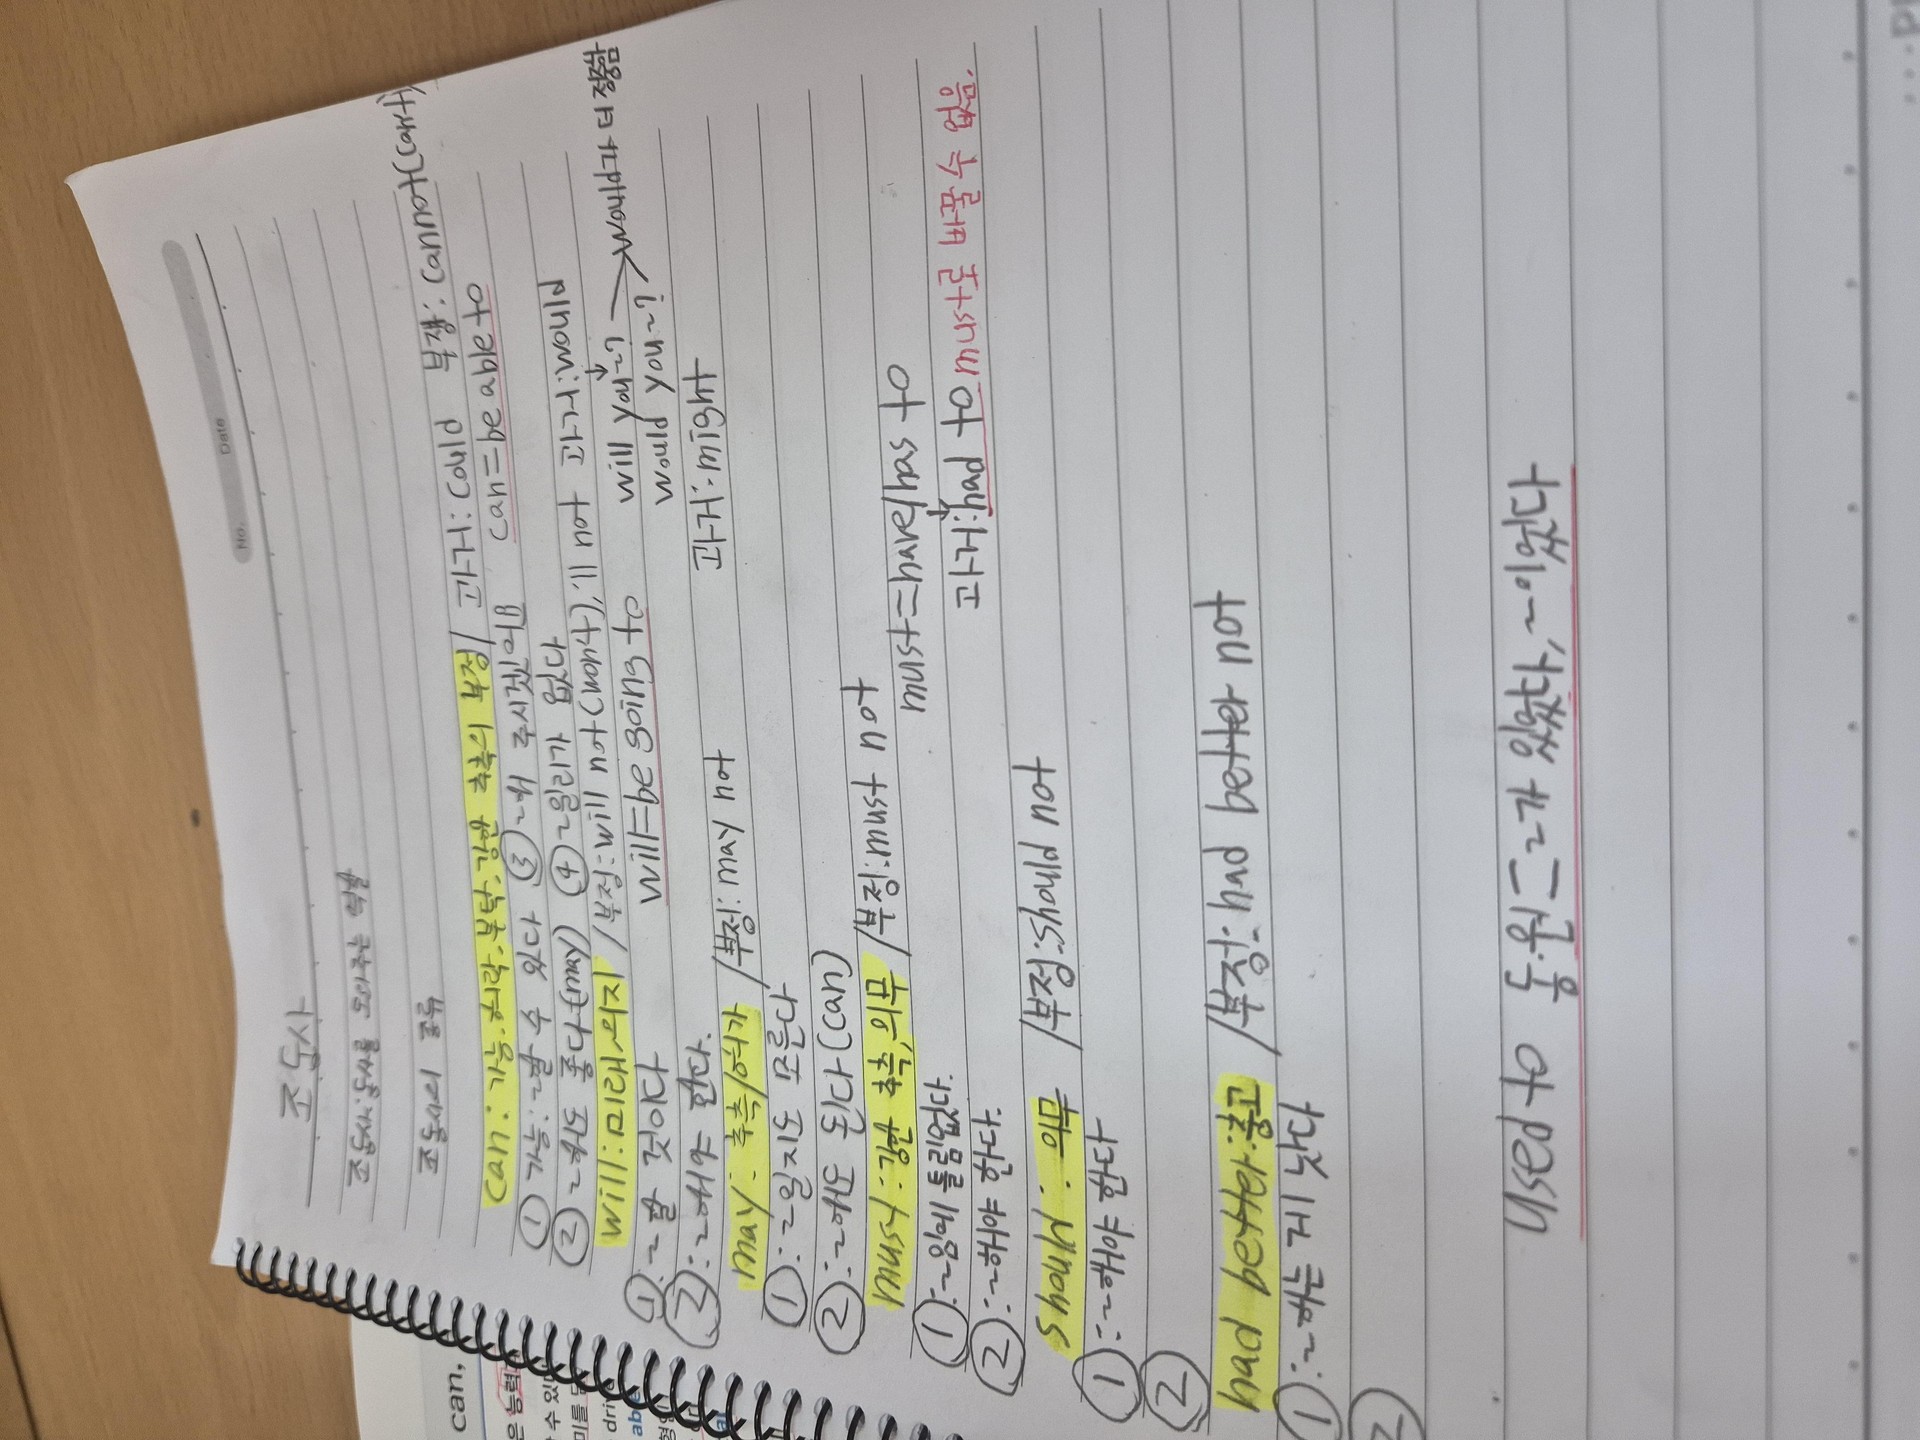 No.
Date
조동사
조동사: 동사를 도와주는 역할
조동사의 종류
can: 가능·허락·부탁·강한 추측의 부정 / 과거: could 부정: cannot(can't)
① 가능: ~할 수 있다 ③ ~해 주시겠어요 can=be able to
② ~해도 좋다(may) ④ ~일리가 없다
will: 미래·의지 / 부정: will not(won't), 'll not 과거: would
①: ~할 것이다 will=be going to will you~? → would가 더 정중함
②: ~해 주 would you~?
may: 추측/허가 / 부정: may not 과거: might
①: ~일지도 모른다
②: ~해도 된다(can)
must: 강한 추측, 의무 / 부정: must not must=have/has to
①: ~임에 틀림없다.
②: ~해야 한다. 과거: had to must+not
should: 의무 / 부정: should not
①: ~해야 한다
②
had better: / 부정: had better not
①: ~하는 게 낫다
used to